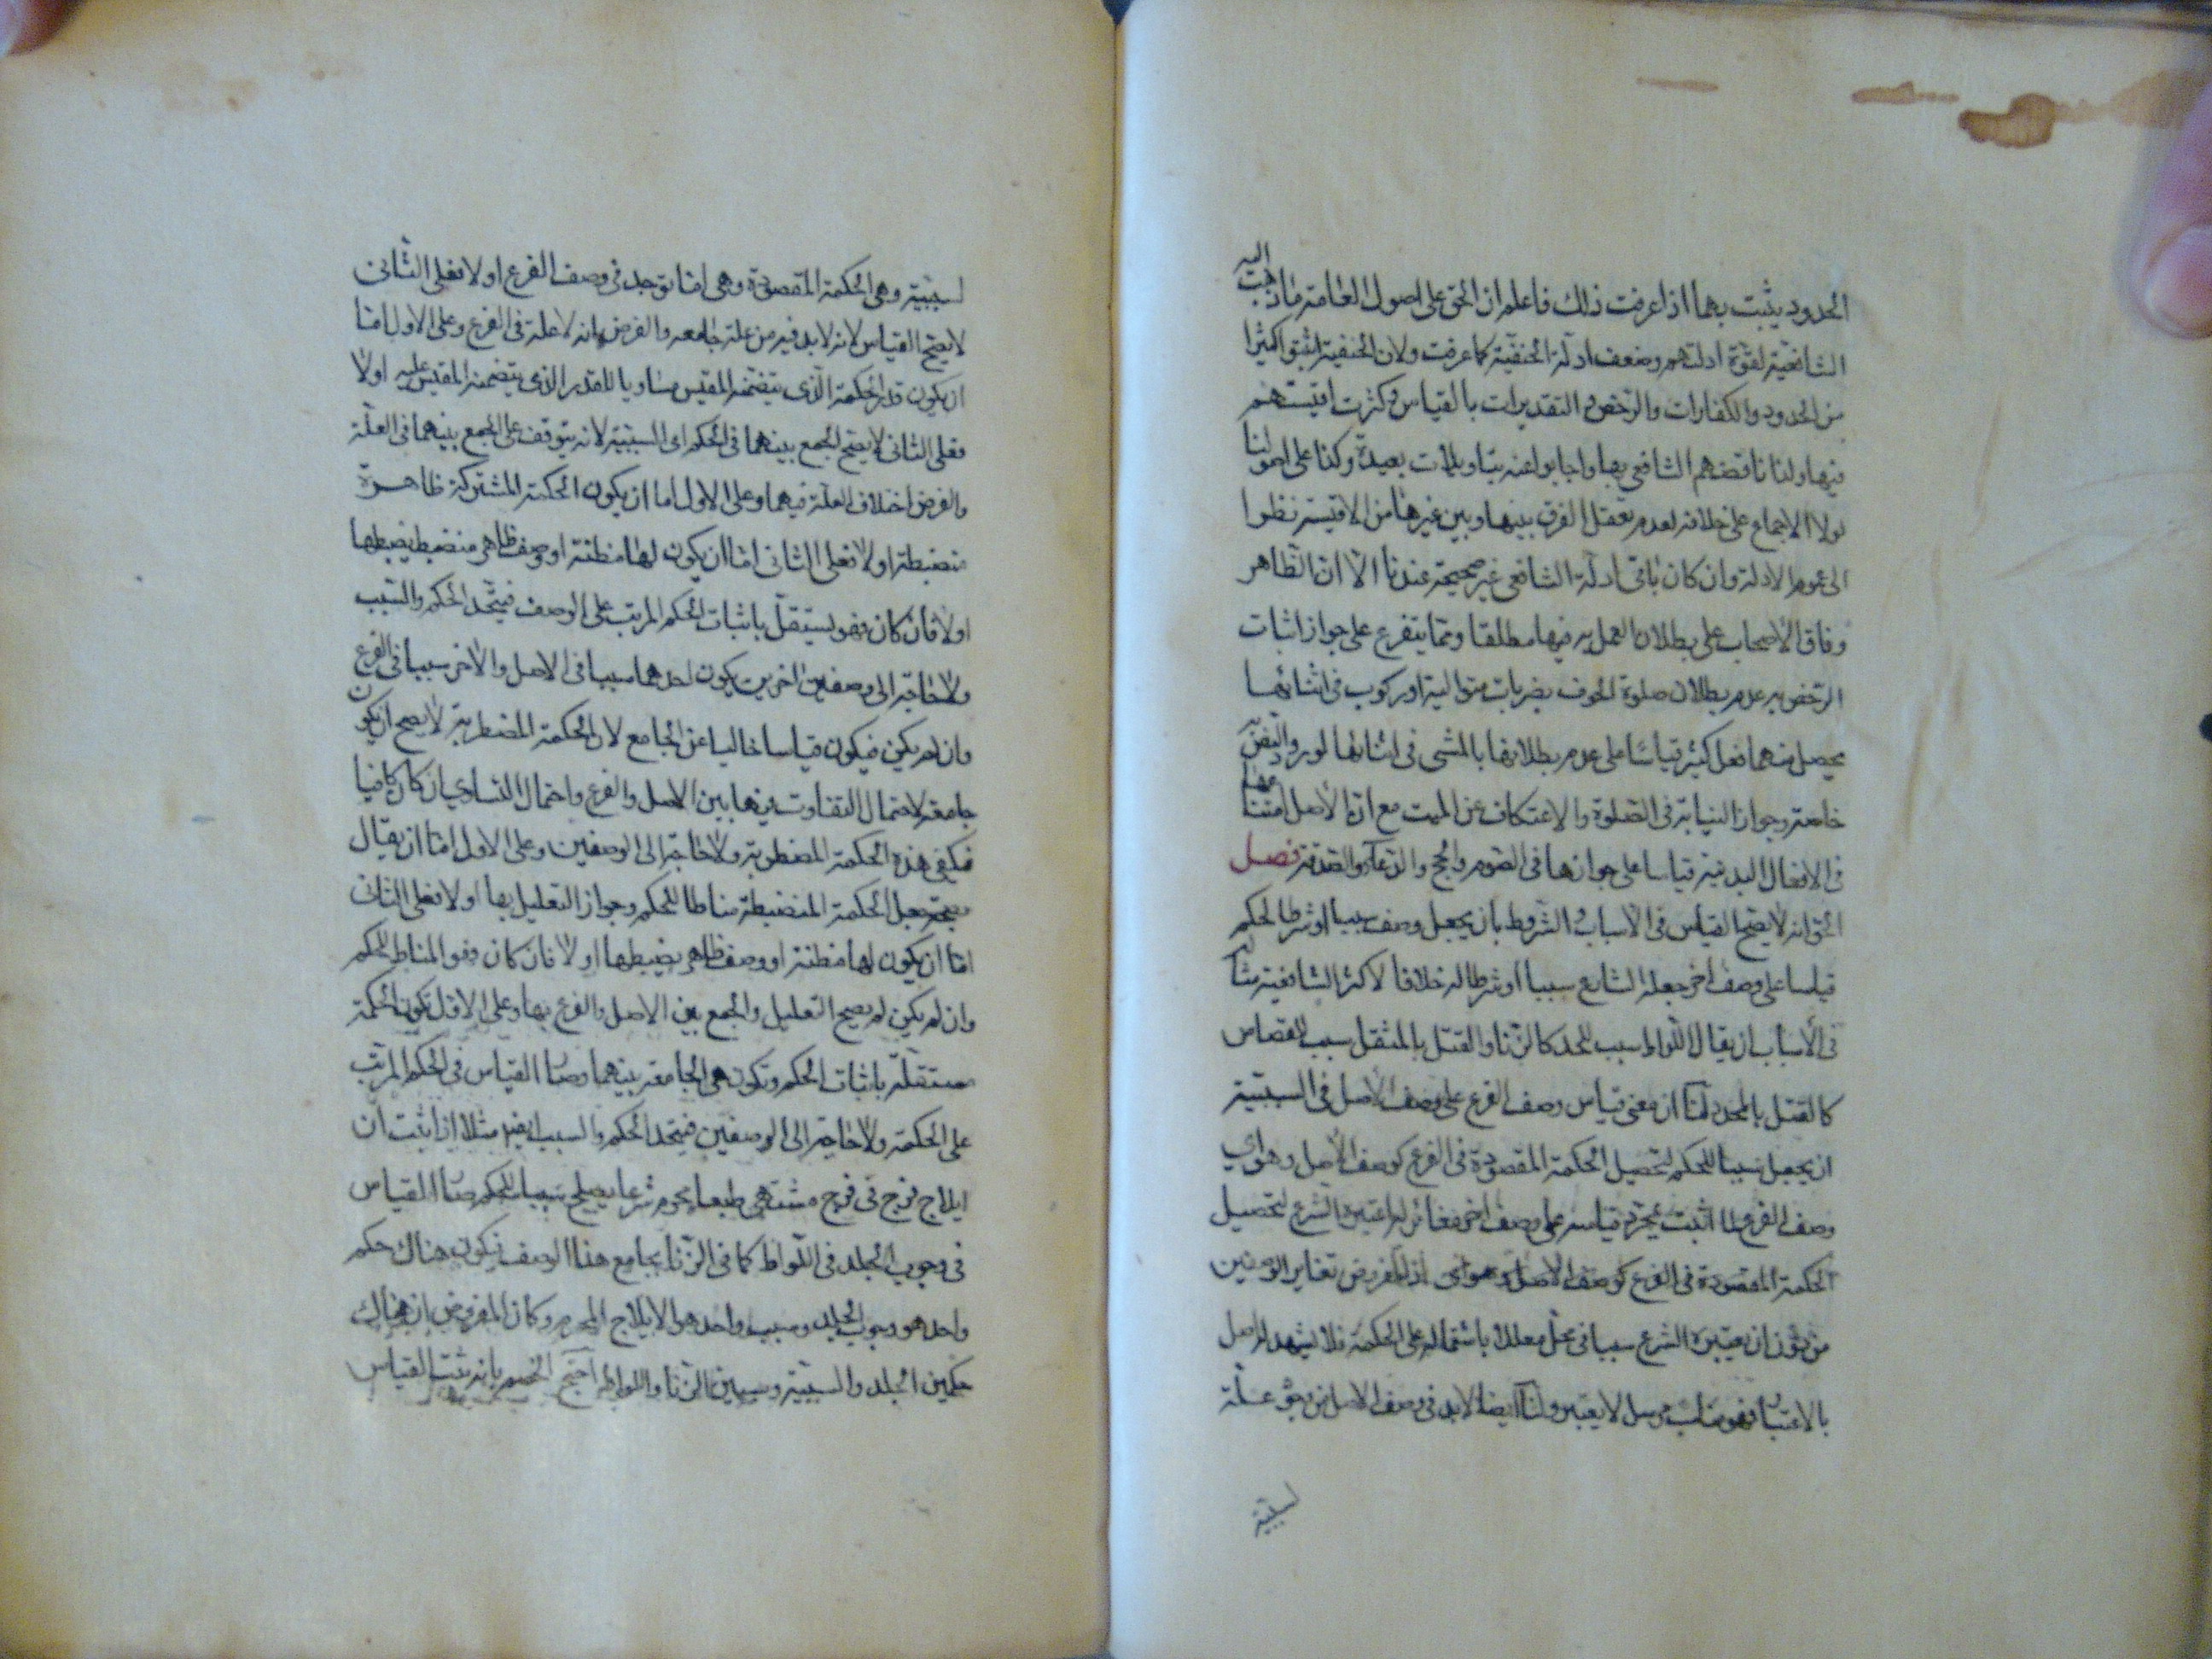 الحدود يثبت بهما اذا عرفت ذلك فاعلم ان الحق على اصول العامة ما ذهبت اليه
الشافعية لقوة ادلتهم وضعف ادلة الحنفية كما عرفت ولان الحنفية اثبتوا كثيرا
من الحدود والكفارات والرخص والتقديرات بالقياس وكثرت اقيستهم
فيها ولذا ناقضهم الشافعي بها واجابوا عنه بتاويلات بعيدة وكذا على اصولنا
لولا الاجماع على خلافه لعدم تعقل الفرق بينها وبين غيرها من الاقيسة نظرا
الى عموم الادلة وان كان باقى ادلة الشافعي غير صحيحة عندنا الا ان الظاهر
وفاق الاصحاب على بطلان العمل به فيها مطلقا ومما يتفرع على جواز اثبات
الرخص به عدم بطلان صلوة الخوف بضربات متوالية او ركوب في اثنائها
يحصل منهما فعل كثير قياسا على عدم بطلانها بالمشى فى اثنائها لورود النص به
خاصة وجواز النيابة فى الصلوة والاعتكاف عن الميت مع ان الاصل امتناعها
فى الافعال البدنية قياسا على جوازها فى الصوم والحج والدعاء والصدقة فصل
الحق انه لا يصح القياس فى الاسباب والشروط بان يجعل وصف سببا او شرطا لحكم
قياسا على وصف اخر جعله الشارع سببا او شرطا له خلافا لاكثر الشافعية مثاله
فى الاسباب ان يقال اللواط سبب للحد كالزنا والقتل بالمثقل سبب للقصاص
كالقتل بالمحدد لنا ان معنى قياس وصف الفرع على وصف الاصل فى السببية
ان يجعل سببا للحكم لتحصيل الحكمة المقصودة فى الفرع كوصف الاصل وهو اى
وصف الفرع لما اثبت بمجرد قياسه على وصف اخر مغاير له اعتبره الشرع لتحصيل
الحكمة المقصودة فى الفرع كوصف الاصل وهو اى اذ المفروض تغاير الوصفين
من دون ان يعتبره الشرع سببا فى محل معللا باشتماله على الحكمة فلا يشهد له اصل
بالاعتبار فهو مناسب مرسل لا يعتبر ولنا ايضا لابد فى وصف الاصل من علة
لسببية
لسببية وهى الحكمة المقصودة وهى اما توجد فى وصف الفرع او لا فعلى الثانى
لا يصح القياس لانه لابد فيه من علة جامعه والفرض انه لا علة فى الفرع وعلى الاول اما
ان يكون قدر الحكمة الذى يتضمنه المقيس مساويا للقدر الذى يتضمنه المقيس عليه او لا
فعلى الثانى لا يصح الجمع بينهما فى الحكم اى السببية لانه يتوقف على الجمع بينهما فى العلة
والفرض اختلاف العلة فيهما وعلى الاول اما ان يكون الحكمة المشتركة ظاهرة
منضبطة او لا فعلى الثانى اما ان يكون لها مظنة او وصف ظاهر منضبط يضبطها
او لا فان كان فهو يستقل باثبات الحكم المرتب على الوصف فيتحد الحكم والسبب
ولا حاجة الى وصفين اخرين يكون احدهما سببا فى الاصل والاخر سببا فى الفرع
وان لم يكن فيكون قياسا خاليا عن الجامع لان الحكمة المضطربة لا يصح ان يكون
جامعة لاحتمال التفاوت فيها بين الاصل والفرع واحتمال التساوى ان كان كافيا
فيكفى هذه الحكمة المضطربة ولا حاجة الى الوصفين وعلى الاول اما ان يقال
بصحة جعل الحكمة المنضبطة مناطا للحكم وجواز التعليل بها او لا فعلى الثانى
اما ان يكون لها مظنة او وصف ظاهر يضبطها او لا فان كان فهو المناط للحكم
وان لم يكن لم يصح التعليل والجمع بين الاصل والفرع بها وعلى الاول تكون الحكمة
مستقلة باثبات الحكم وتكون هى الجامعة بينهما وصار القياس فى الحكم المرتب
على الحكمة ولا حاجة الى الوصفين فيتحد الحكم والسبب ايضا مثلا اذا ثبت ان
ايلاج فرج فى فرج مشتهى طبعا محرم شرعا يصلح سببا للحكم صار القياس
فى وجوب الجلد فى اللواط كما فى الزنا بجامع هذا الوصف فيكون هناك حكم
واحد هو وجوب الجلد وسبب واحد هو الايلاج المحرم وكان المفروض ان هناك
حكمين الجلد والسببية وسببين الزنا واللواط احتج الخصم بانه ثبت القياس